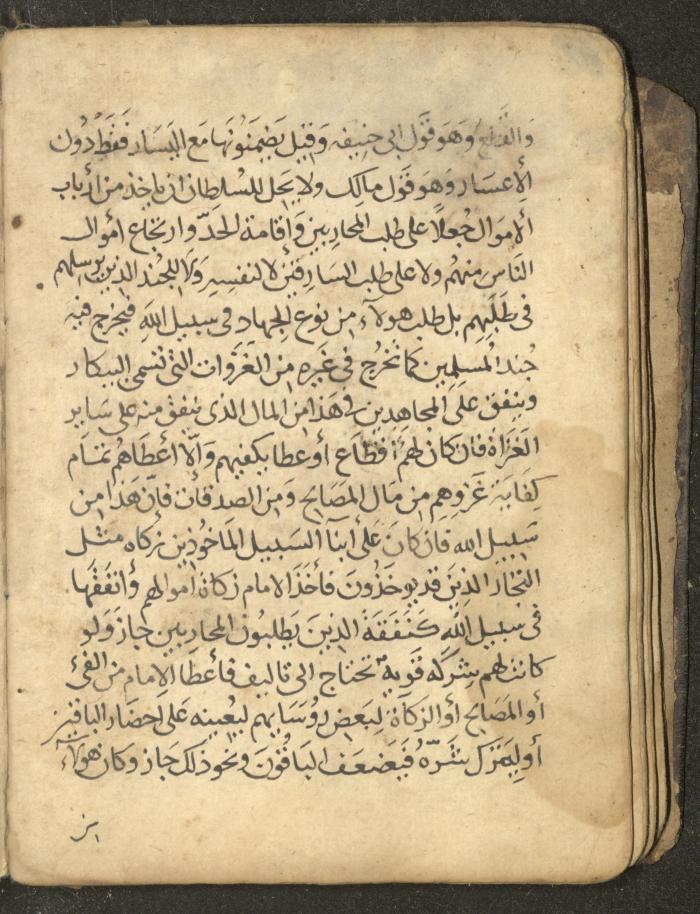 والقطع وهو قول ابى حنيفه وقيل يضمنونها مع اليسار فقط دون
الاعسار وهو قول مالك ولا يحل للسلطان ان ياخذ من ارباب
الاموال جعلا على طلب المحاربين واقامة الحد وارتجاع اموال
الناس منهم ولا على طلب السارقين لا لنفسه ولا للجند الذين يرسلهم
فى طلبهم بل طلب هولاء من نوع الجهاد فى سبيل الله فيخرج فيه
جند المسلمين كما تخرج فى غيره من الغزوات التى تسمى البيكار
وينفق على المجاهدين فى هذا من المال الذى ينفق منه على ساير
الغزاة فان كان لهم اقطاع أو عطا يكفيهم والا اعطاهم تمام
كفاية غزوهم من مال المصالح ومن الصدقات فان هذا من
سبيل الله فان كان على ابنآ السبيل الماخوذين زكاه مثل
التجار الذين قد يوخذون فأخذ الامام زكاة اموالهم وأنفقها
فى سبيل الله كنفقة الذين يطلبون المحاربين جاز ولو
كانت لهم شركه قوية تحتاج الى تاليف فأعطا الامام من الفئ
أو المصالح أو الزكاة لبعض رؤسايهم ليعينه على احضار الباقين
أو ليترك شره فيضعف الباقون ونحو ذلك جاز وكان هولآء